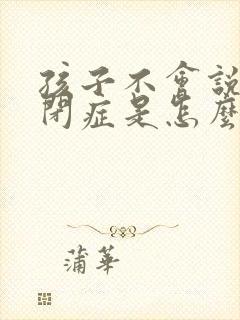 孩子不會說
閉症是怎麼
蒲華